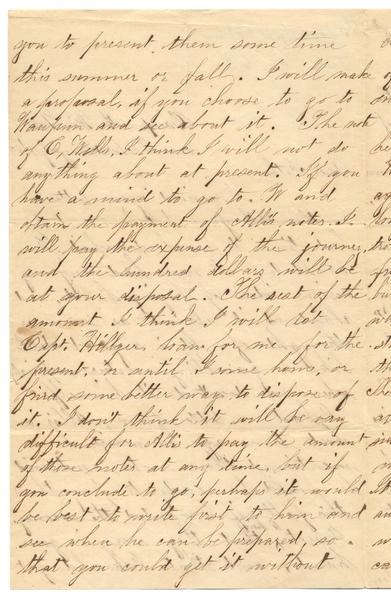 you to present them some time
this summer or fall. I will make
a proposal, if you choose to go to
Waupun and see about it. The note
of C. Wells, I think I will not do
anything about at present. If you
have a mind to go to. W and
obtain the payment of Alli's notes. I
will pay the expense of the journey
and the hundred dollars will be
at your disposal. The rest of the
amount I think I will let
Capt. Hillyer, loan for me for the
present, or until I come home, or
find some better way to dispose of
it. I don't think it will be very
difficult for Alis to pay the amount
of those notes at any time, but if
you conclude to go, perhaps it would
be best to write first to him and
see when he can be prepared, so
that you could get it without